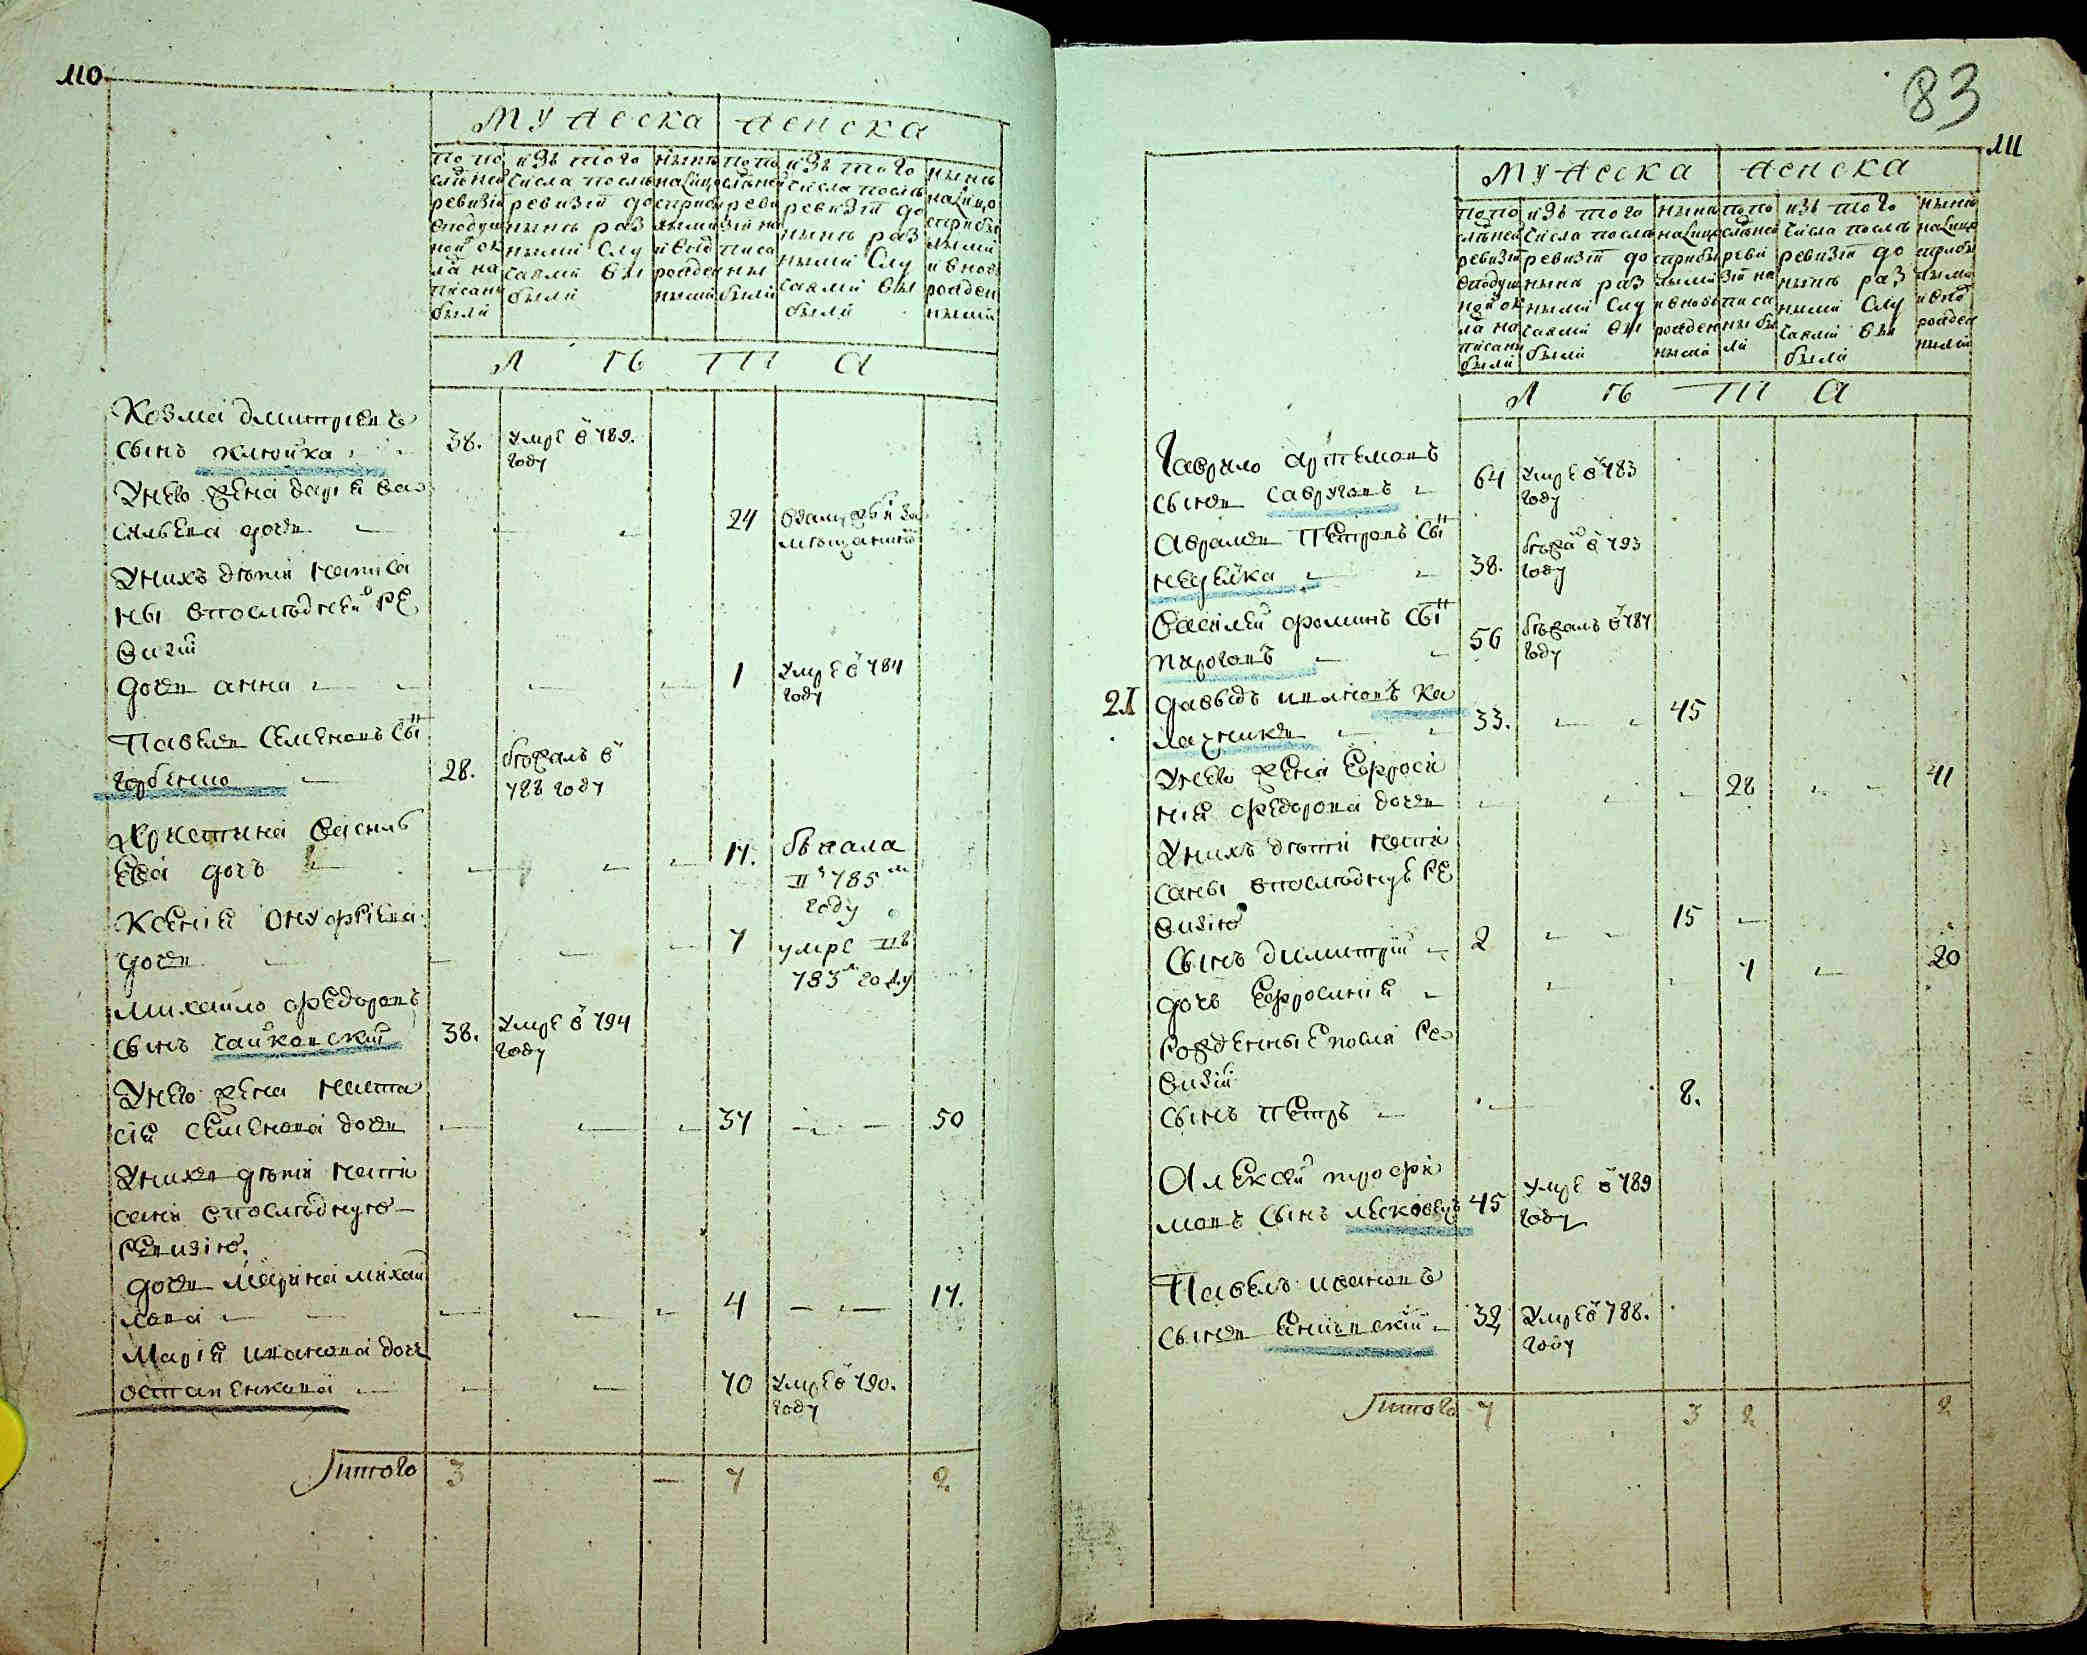 110
МУЖЕСКА ЖЕНСКА
по по
слѣней
ревизіи
в подуш
ной ок
ла на
писаны
были
изъ того
числа послѣ
ревизіи до
нынѣ раз
ными слу
чаями вы
были
нынѣ
на лицо
по по
слѣней
реви
зіи на
писа
ны
были
изъ того
числа послѣ
ревизіи до
нынѣ раз
ными слу
чаями вы
были
нынѣ
на лицо
с прибы
лыми
и вновь
рожден
ными
Л Ѣ Т А
Козма дмитріевъ
сынъ 38. умре в 789.
году
У него жена дарія ва
сильева дочь 24
У нихъ дѣти написа
ны в последней ре
визіи
дочь анна 1 умре в 784
году
Павелъ Семеновъ сынъ
горбенко 28. бежалъ в
788 году
Христина василь
ева дочь 17. бежала
в 785 м
году
Ксенія онуфріева
дочь 7 умре въ
783 м году
михайло федоровъ
сынъ чайковскій 38. умре в 794
году
У него жена наста
сія семенова дочь 37 50
У нихъ дѣти напи
сани в последную
ревизію.
дочь марина михай
лова 4 17.
Марія иванова дочь
остапенкова 70 умре в 790.
году
Итого 3 7 2
83
111
МУЖЕСКА ЖЕНСКА
по по
слѣней
ревизіи
в подуш
ной ок
ла на
писаны
были
изъ того
числа после
ревизіи до
нынѣ раз
ными слу
чаями вы
были
нынѣ
на лицо
с прибы
лыми
и вновь
рожден
ными
по по
слѣней
реви
зіи на
писа
ны бы
ли
изъ того
числа послѣ
ревизіи до
нынѣ раз
ными слу
чаями вы
были
нынѣ
на лицо
с прибы
лыми
и вно
рожден
ными
Л Ѣ Т А
Гаврило артемовъ
сынъ 64 умре в 783
году
Аврамъ Петровъ сынъ
38. в 793
году
Василей фоминъ сынъ
пироговъ 56 бежалъ в 787
году
21 давыдъ ивановъ ка
лачникъ 33. 45
У него жена Ефроси
нія федорова дочь 28 41
У нихъ дѣти напи
саны в последную ре
визію
Сынъ димитрій 2 15
дочь Ефросинія 7 20
рожденные посля ре
визіи
сынъ петръ 8.
Алексей трофи
мовъ сынъ 45 умре в 789
году
Павелъ ивановъ
сынъ 32 умре в 788.
году
Итого 7 3 2 2